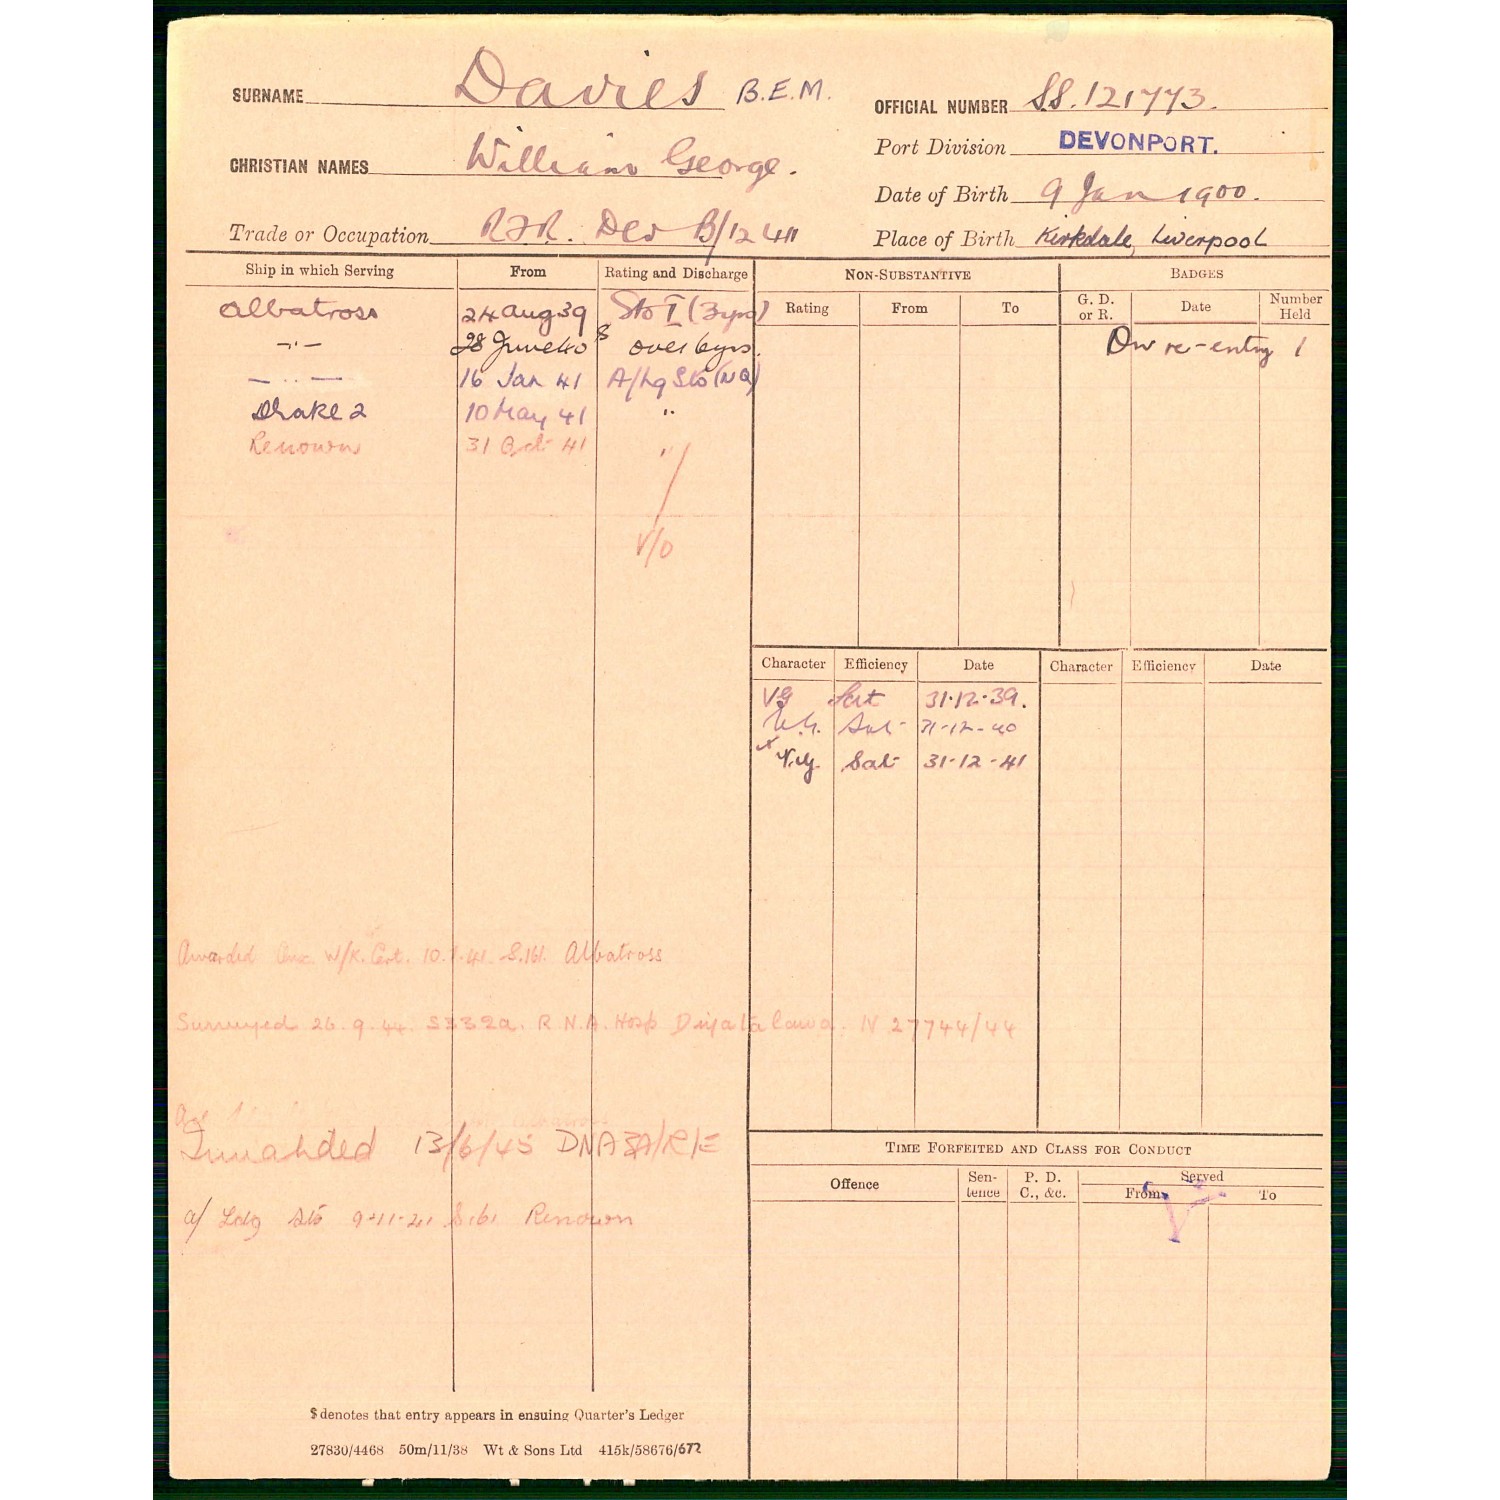 SURNAME Davies B.E.M.
OFFICIAL NUMBER SS.121773.
Port Division DEVONPORT.
CHRISTIAN NAMES William George.
Date of Birth 9 Jan 1900.
Trade or Occupation R.F.R. Dev B/12411
Place of Birth Kirkdale, Liverpool
Ship in which Serving From Rating and Discharge
Albatross 24 Aug 39 Sto I (3yrs)
-"- 28 June 40 $ over 6yrs.
— .. — 16 Jan 41 A/Lg Sto (NQ)
Drake 2 10 May 41 "
Renown 31 Oct 41 "
V/O
NON-SUBSTANTIVE
Rating From To
BADGES
G. D. or R. Date Number Held
On re-entry 1
Character Efficiency Date Character Efficiency Date
VG Sat 31.12.39.
V.G. Sat 31-12-40
V.G. Sat 31-12-41
Awarded W/K. Cert. 41 S.161 Albatross
Surveyed 26.9.44. S332a. R.N.A. Hosp Diyatalawa. N 27744/44
Invalided 13/6/45 DNA
a/ Ldg Sto 9-11-41 S.161 Renown
TIME FORFEITED AND CLASS FOR CONDUCT
Offence Sentence P. D. C., &c. Served
From To
$ denotes that entry appears in ensuing Quarter's Ledger
27830/4468 50m/11/38 Wt & Sons Ltd 415k/58676/677